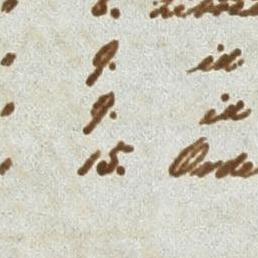 8.
9. id.
9. id
15. Orde